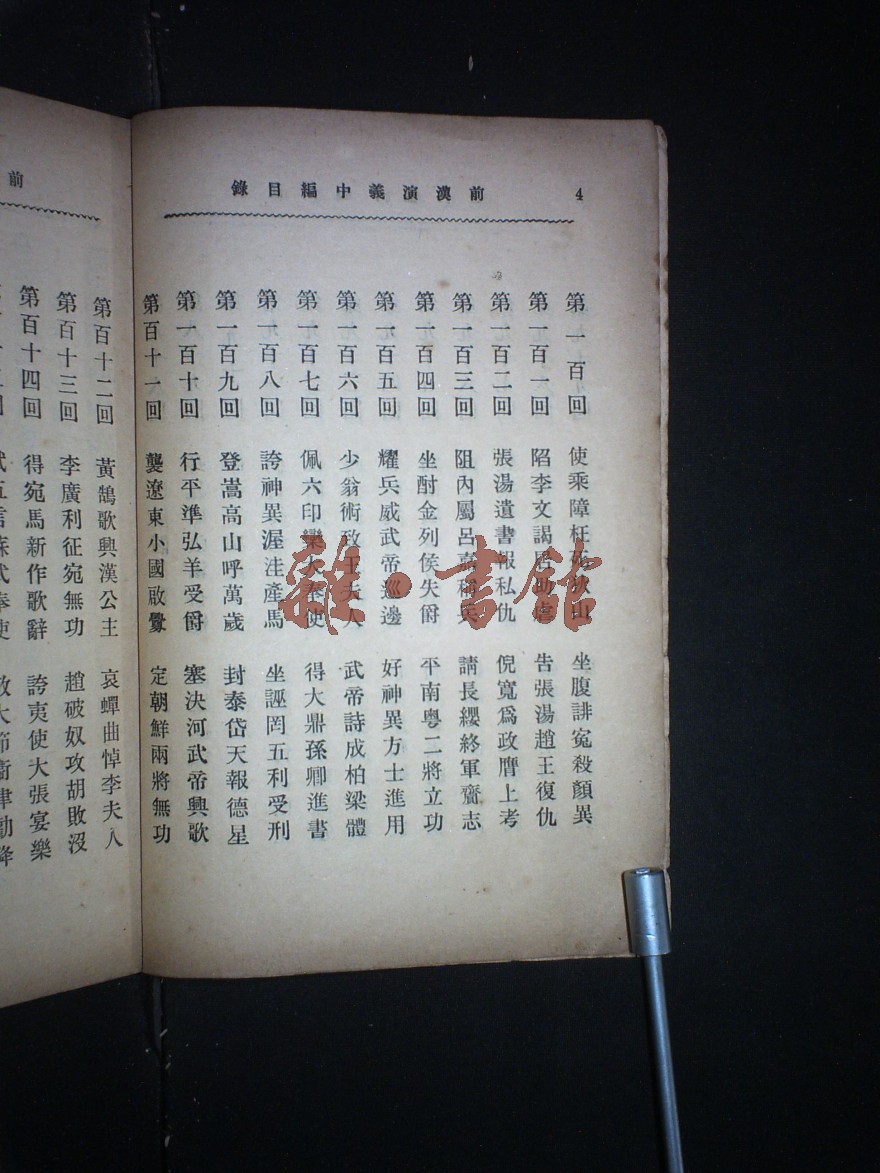 前漢演義中編目錄 4
第一百回 使乘障枉死狄山 坐腹誹冤殺顏異
第一百一回 陷李文謁居助虐 告張湯趙王復仇
第一百二回 張湯遺書報私仇 倪寬爲政膺上考
第一百三回 阻內屬呂嘉稱兵 請長纓終軍齎志
第一百四回 坐酎金列侯失爵 平南粵二將立功
第一百五回 耀兵威武帝巡邊 好神異方士進用
第一百六回 少翁術致王夫人 武帝詩成柏梁體
第一百七回 佩六印欒大奉使 得大鼎孫卿進書
第一百八回 誇神異渥洼產馬 坐誣罔五利受刑
第一百九回 登嵩高山呼萬歲 封泰岱天報德星
第一百十回 行平準弘羊受爵 塞決河武帝興歌
第百十一回 襲遼東小國啟釁 定朝鮮兩將無功
前
第百十二回 黃鵠歌興漢公主 哀蟬曲悼李夫人
第百十三回 李廣利征宛無功 趙破奴攻胡敗沒
第百十四回 得宛馬新作歌辭 誇夷使大張宴樂
雜·書館